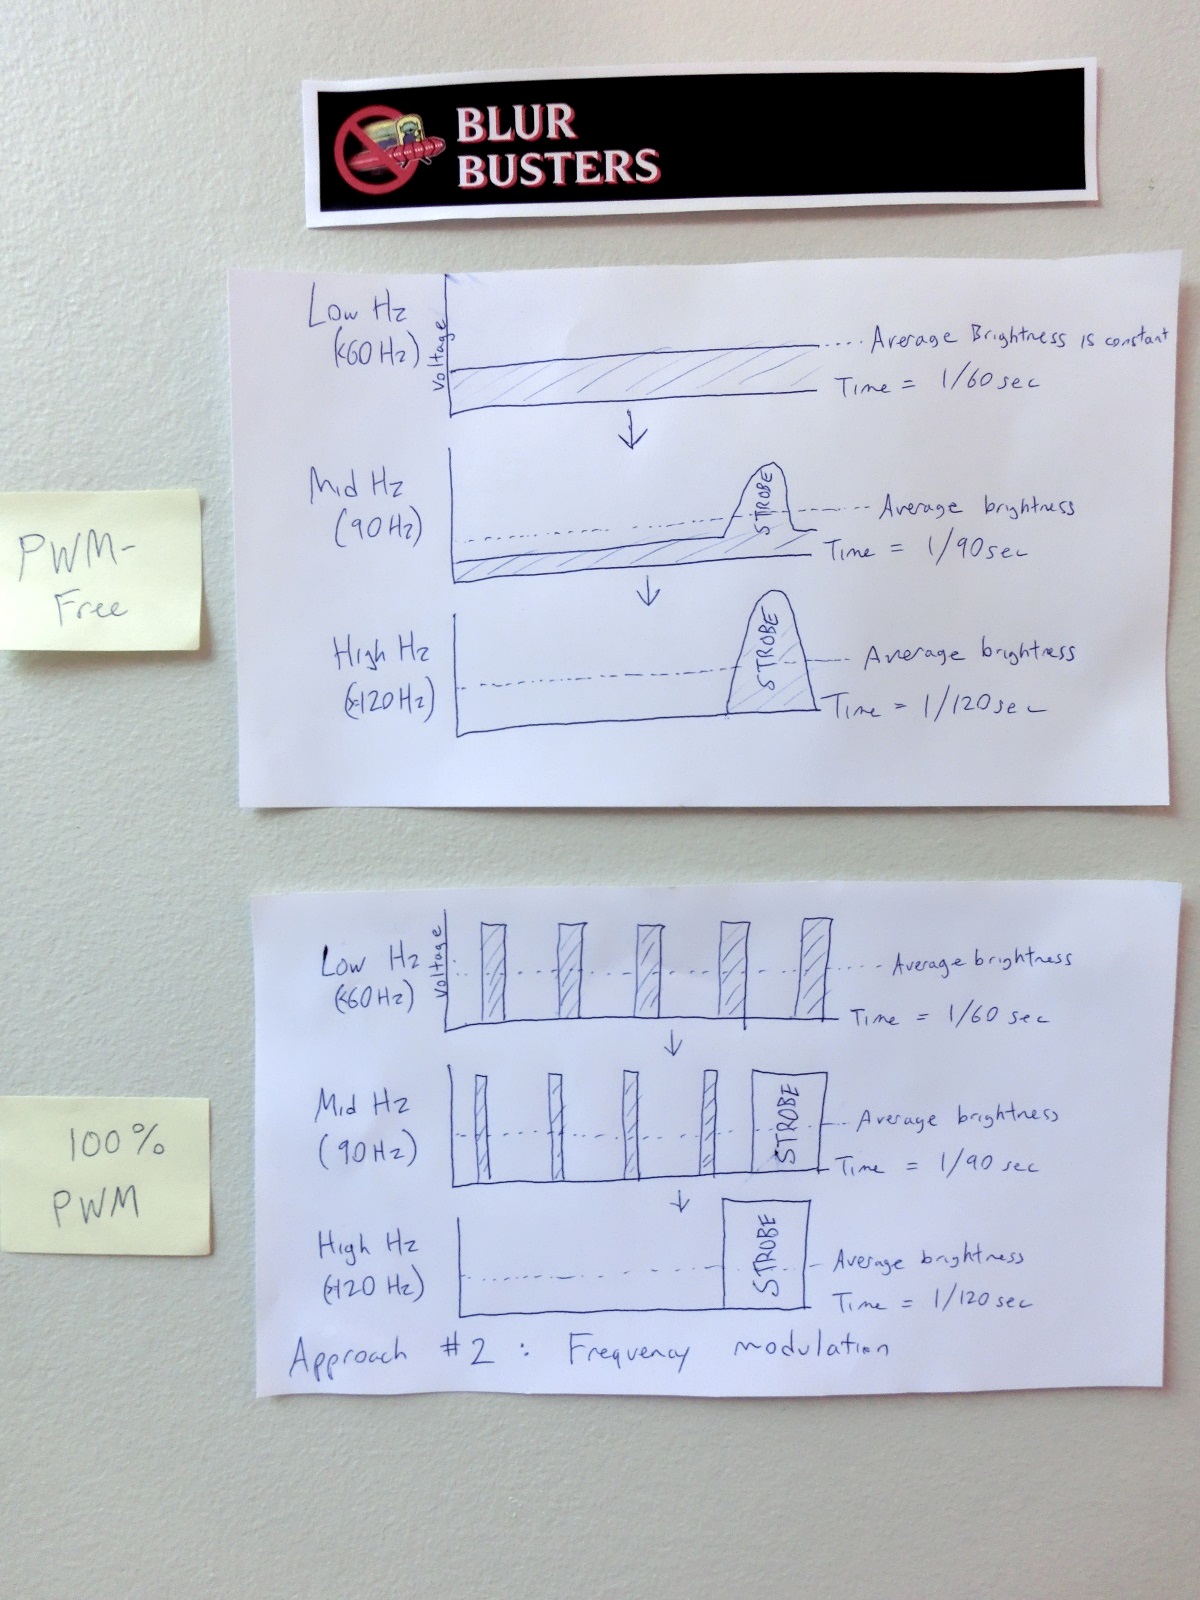 BLUR
BUSTERS
Low Hz
(<60 Hz)
Voltage
Average Brightness is constant
Time = 1/60 sec
Mid Hz
(90 Hz)
STROBE
Average brightness
Time = 1/90 sec
High Hz
(>120 Hz)
STROBE
Average brightness
Time = 1/120 sec
PWM-
Free
Low Hz
(<60 Hz)
Voltage
Average brightness
Time = 1/60 sec
Mid Hz
(90 Hz)
STROBE
Average brightness
Time = 1/90 sec
High Hz
(>120 Hz)
STROBE
Average brightness
Time = 1/120 sec
Approach #2 : Frequency modulation
100%
PWM